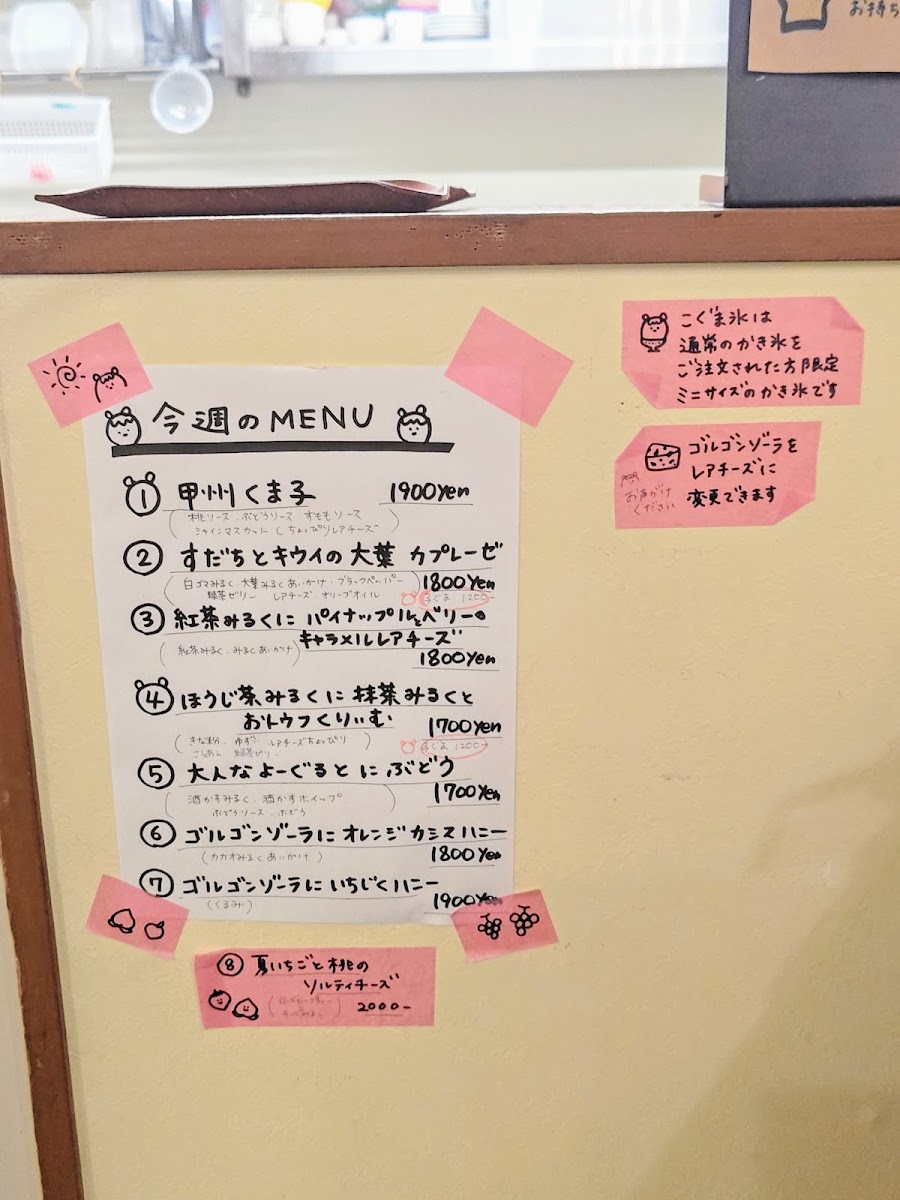 お持ち
今週のMENU
① 甲州くま子 1900yen
(桃ソース・ぶどうソース すももソース
シャインマスカット ちょっぴりレアチーズ)
② すだちとキウイの大葉 カプレーゼ
(白ゴマみるく・大葉みるくあいがけ・ブラックペッパー 1800yen
緑茶ゼリー レアチーズ・オリーブオイル) こぐま 1200-
③ 紅茶みるくに パイナップルとベリーの
キャラメルレアチーズ
(紅茶みるく・みるくあいがけ)
1800yen
④ ほうじ茶みるくに 抹茶みるくと
おトウフくりぃむ 1700yen
(きな粉・ゆず・レアチーズちょっぴり
こしあん 緑茶ゼリー) こぐま 1200-
⑤ 大人なよーぐるとに ぶどう
(酒かすみるく・酒かすホイップ 1700yen
ぶどうソース・ぶどう)
⑥ ゴルゴンゾーラに オレンジカシスハニー
(カカオみるくあいがけ) 1800yen
⑦ ゴルゴンゾーラに いちじくハニー
(くるみ) 1900yen
⑧ 夏いちごと桃の
ソルティチーズ
2000-
こぐま氷は
通常のかき氷を
ご注文された方限定
ミニサイズのかき氷です
ゴルゴンゾーラを
レアチーズに
変更できます
お声がけ
ください